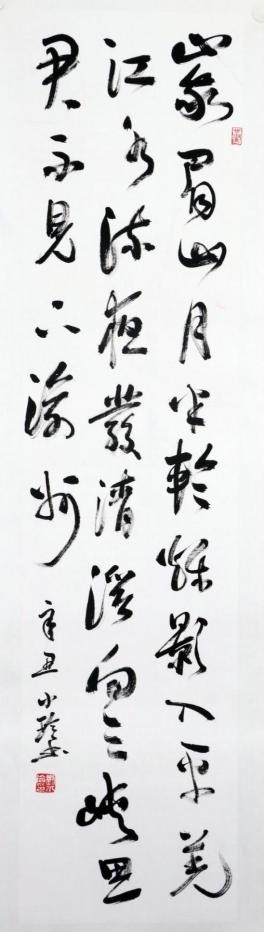 峩眉山月半輪秋影入平羌
江水流夜發清溪向三峽思
君不見下渝州
辛丑小